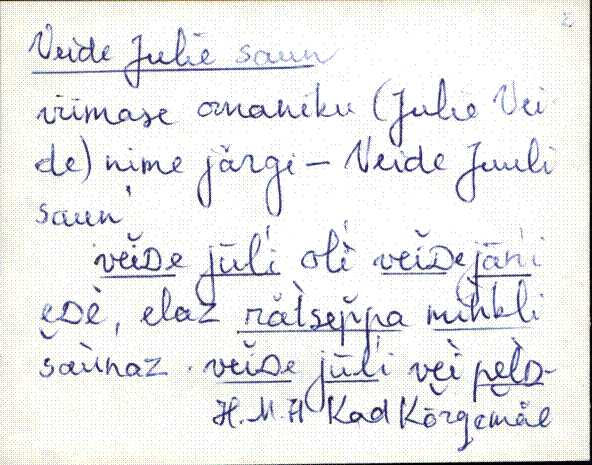 Veide Julie saun
viimase omaniku (Julie Vei-
de) nime järgi – Veide Juuli
saun'
veiᴅe jūl'i olì veiᴅejāńi
eᴅè, elaz rätseppa mihkli
saùnaz. veiᴅe jūl'i vèi pèlᴅ-
H.M.A Kad Kõrgemäe